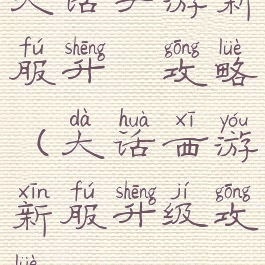 大话手游新
fú shēng gōng lüè
服升 攻略
dà huà xī yóu
(大话西游
xīn fú shēng jí gōng
新服升级攻
lüè